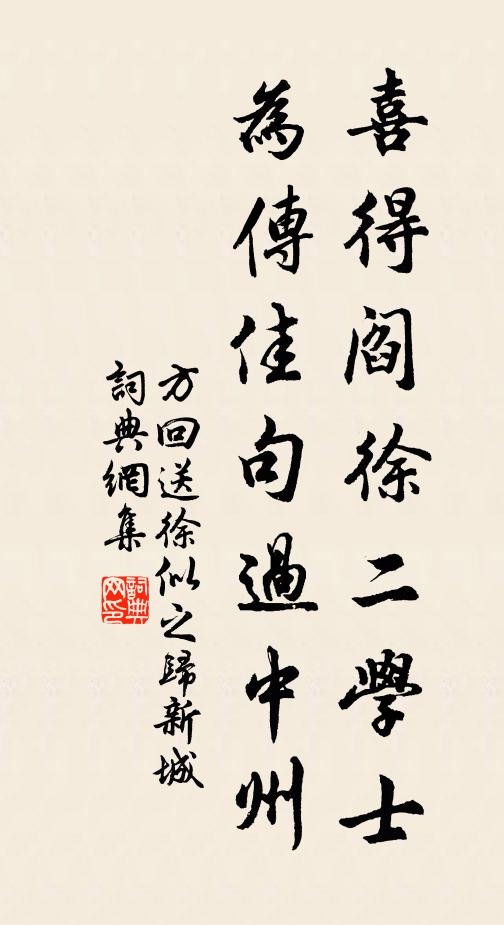 喜得閻徐二學士
為傳佳句過中州
方回送徐似之歸新城
詞典網集
詞典網印